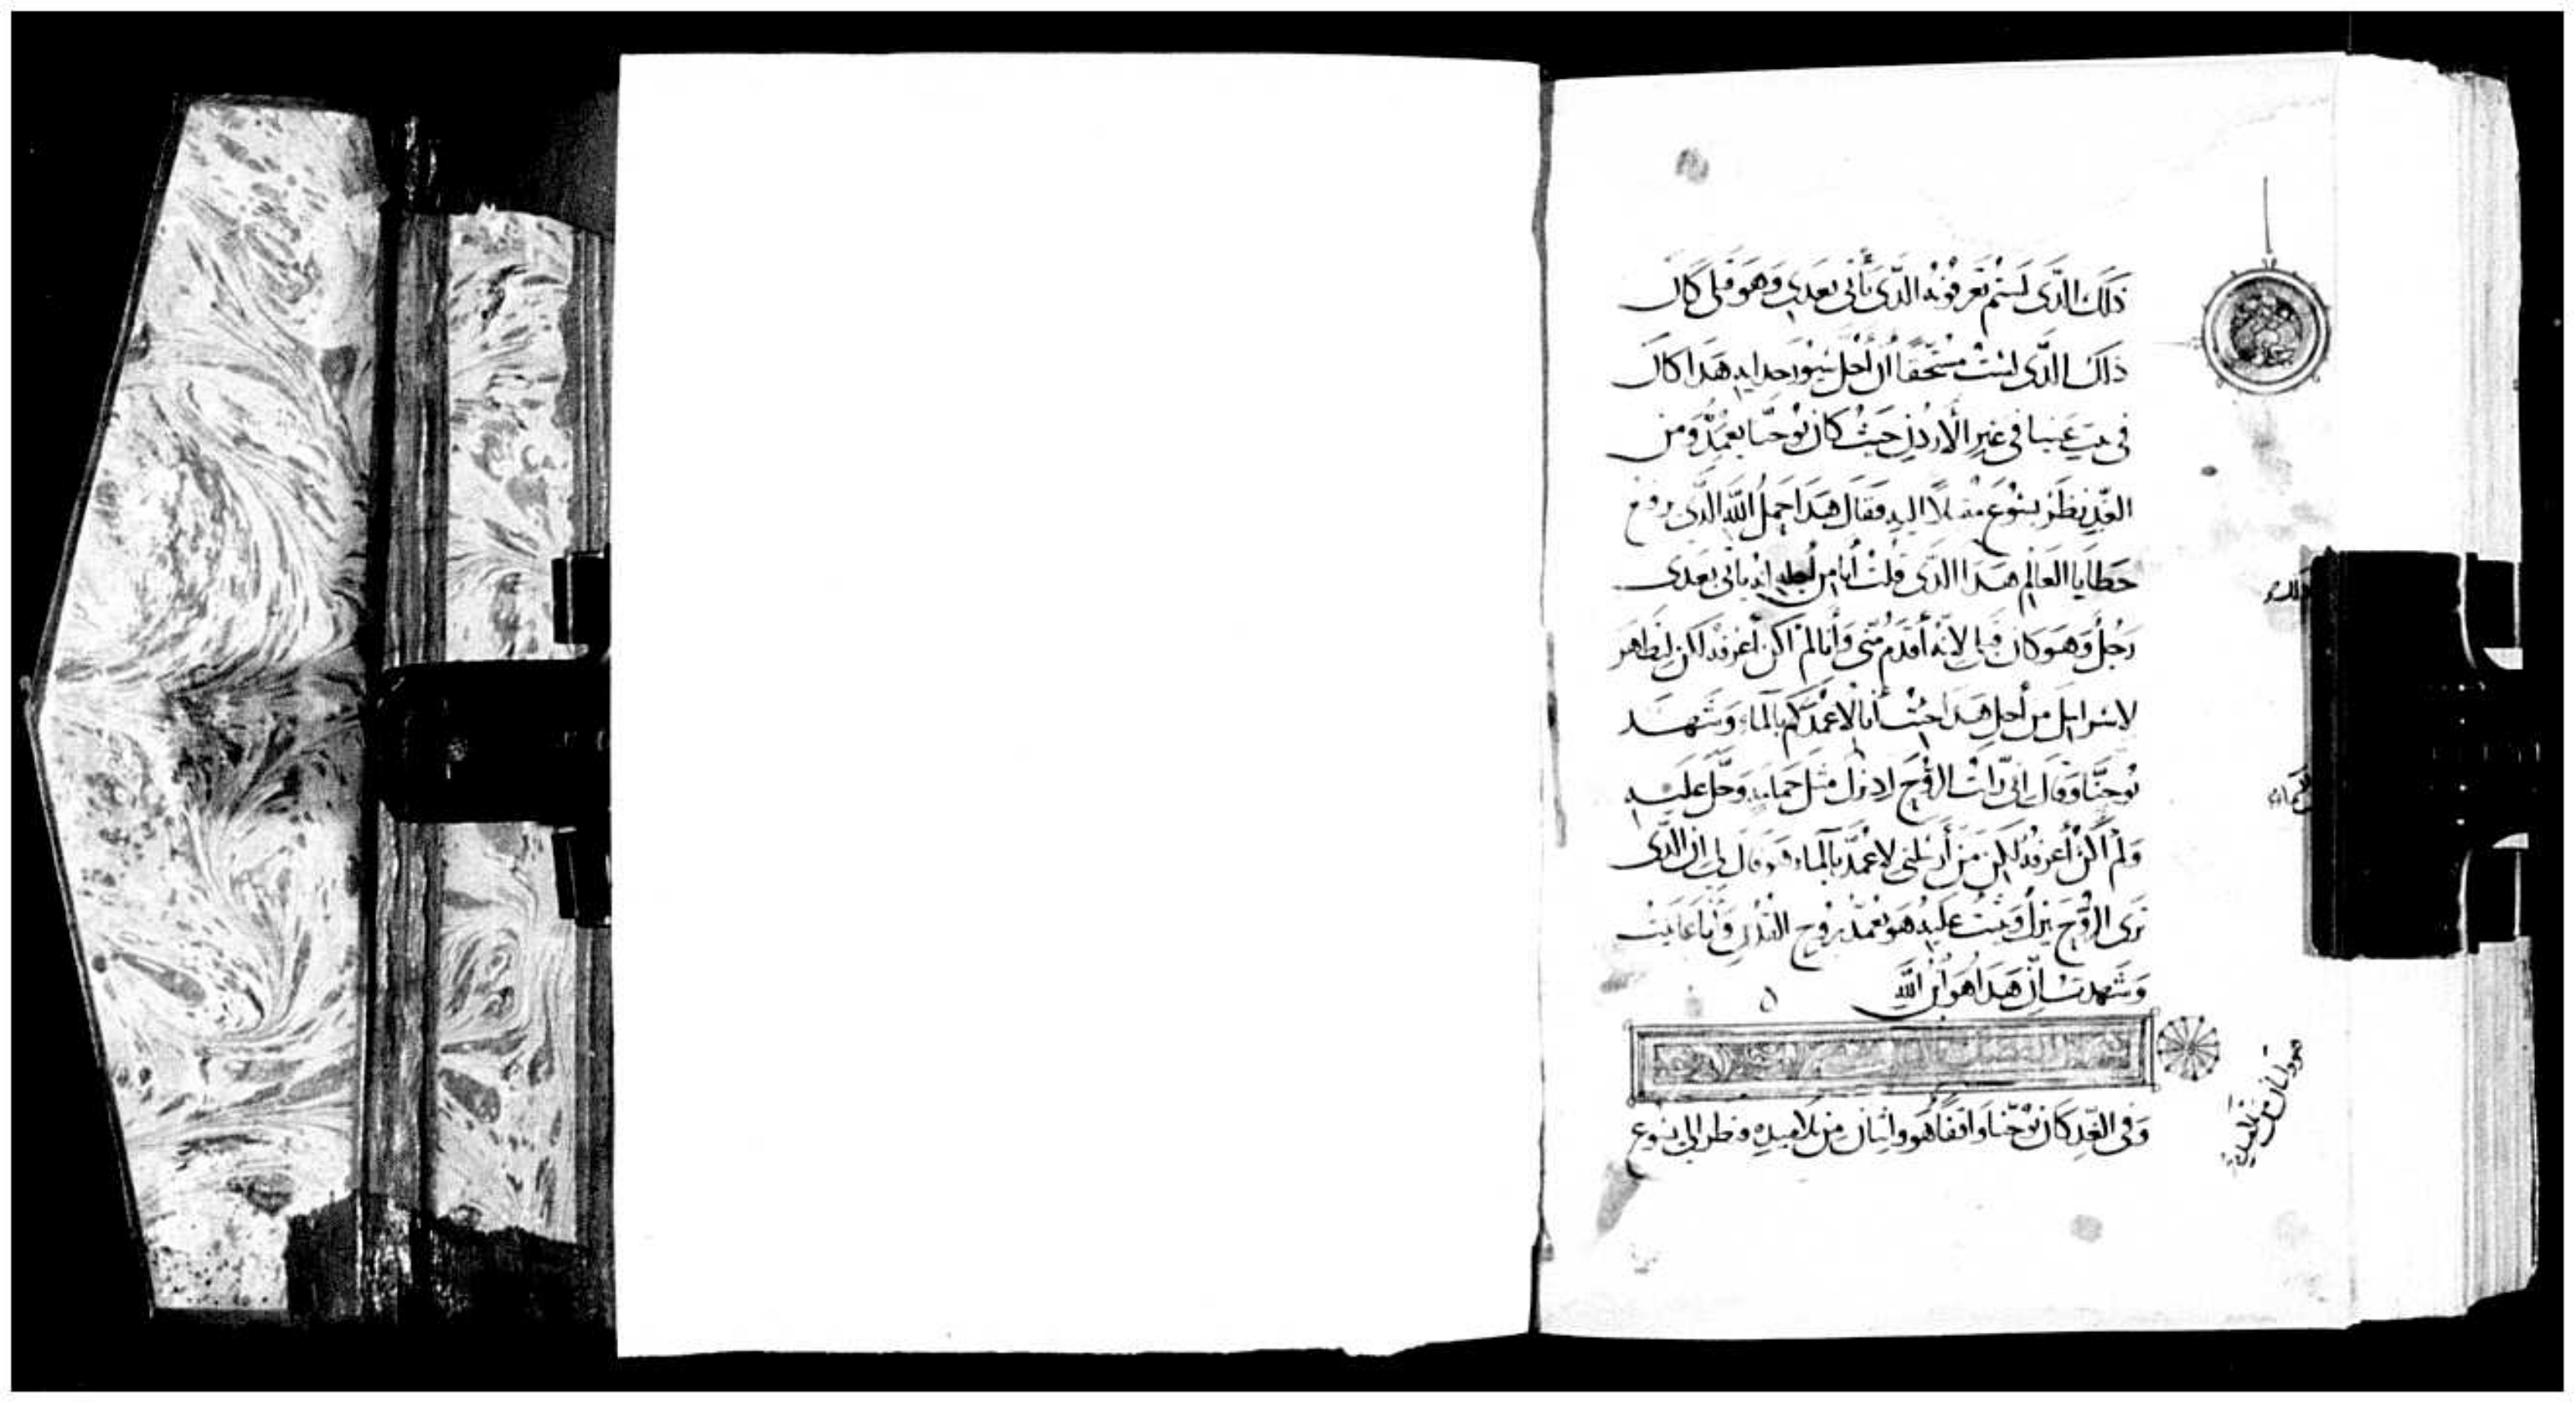 ذلك الذى لستم تعرفونه الذى يأتى بعدى وهو قبلى كان
ذاك الذى لست مستحقا ان احل سيور حدايه هدا كان
فى بيت عنيا فى عبر الاردن حيث كان يوحنا يعمد ومن
الغد نظر يسوع مقبلا اليه فقال هدا حمل الله الدى يرفع
خطايا العالم هدا الدى قلت أنا من أجله انه ياتى بعدى
رجل وهو كان قبلى لانه أقدم منى وأنا لم اكن أعرفه لكن ليظاهر
لاسرايل من أجل هدا جئت أنا لاعمدكم بالماء وشهد
يوحنا وقال انى رأت الروح اد نزل مثل حمامه وحل عليه
ولم اكن أعرفه لكن من أرسلنى لاعمد بالماء هو قال لى ان الدى
ترى الروح ينزل ويثبت عليه هو يعمد بروح القدس وأنا عاينت
وشهدت أن هدا هو ابن الله
وفى الغد كان يوحنا واقفا هو واثنان من تلاميده ونظر الى يسوع